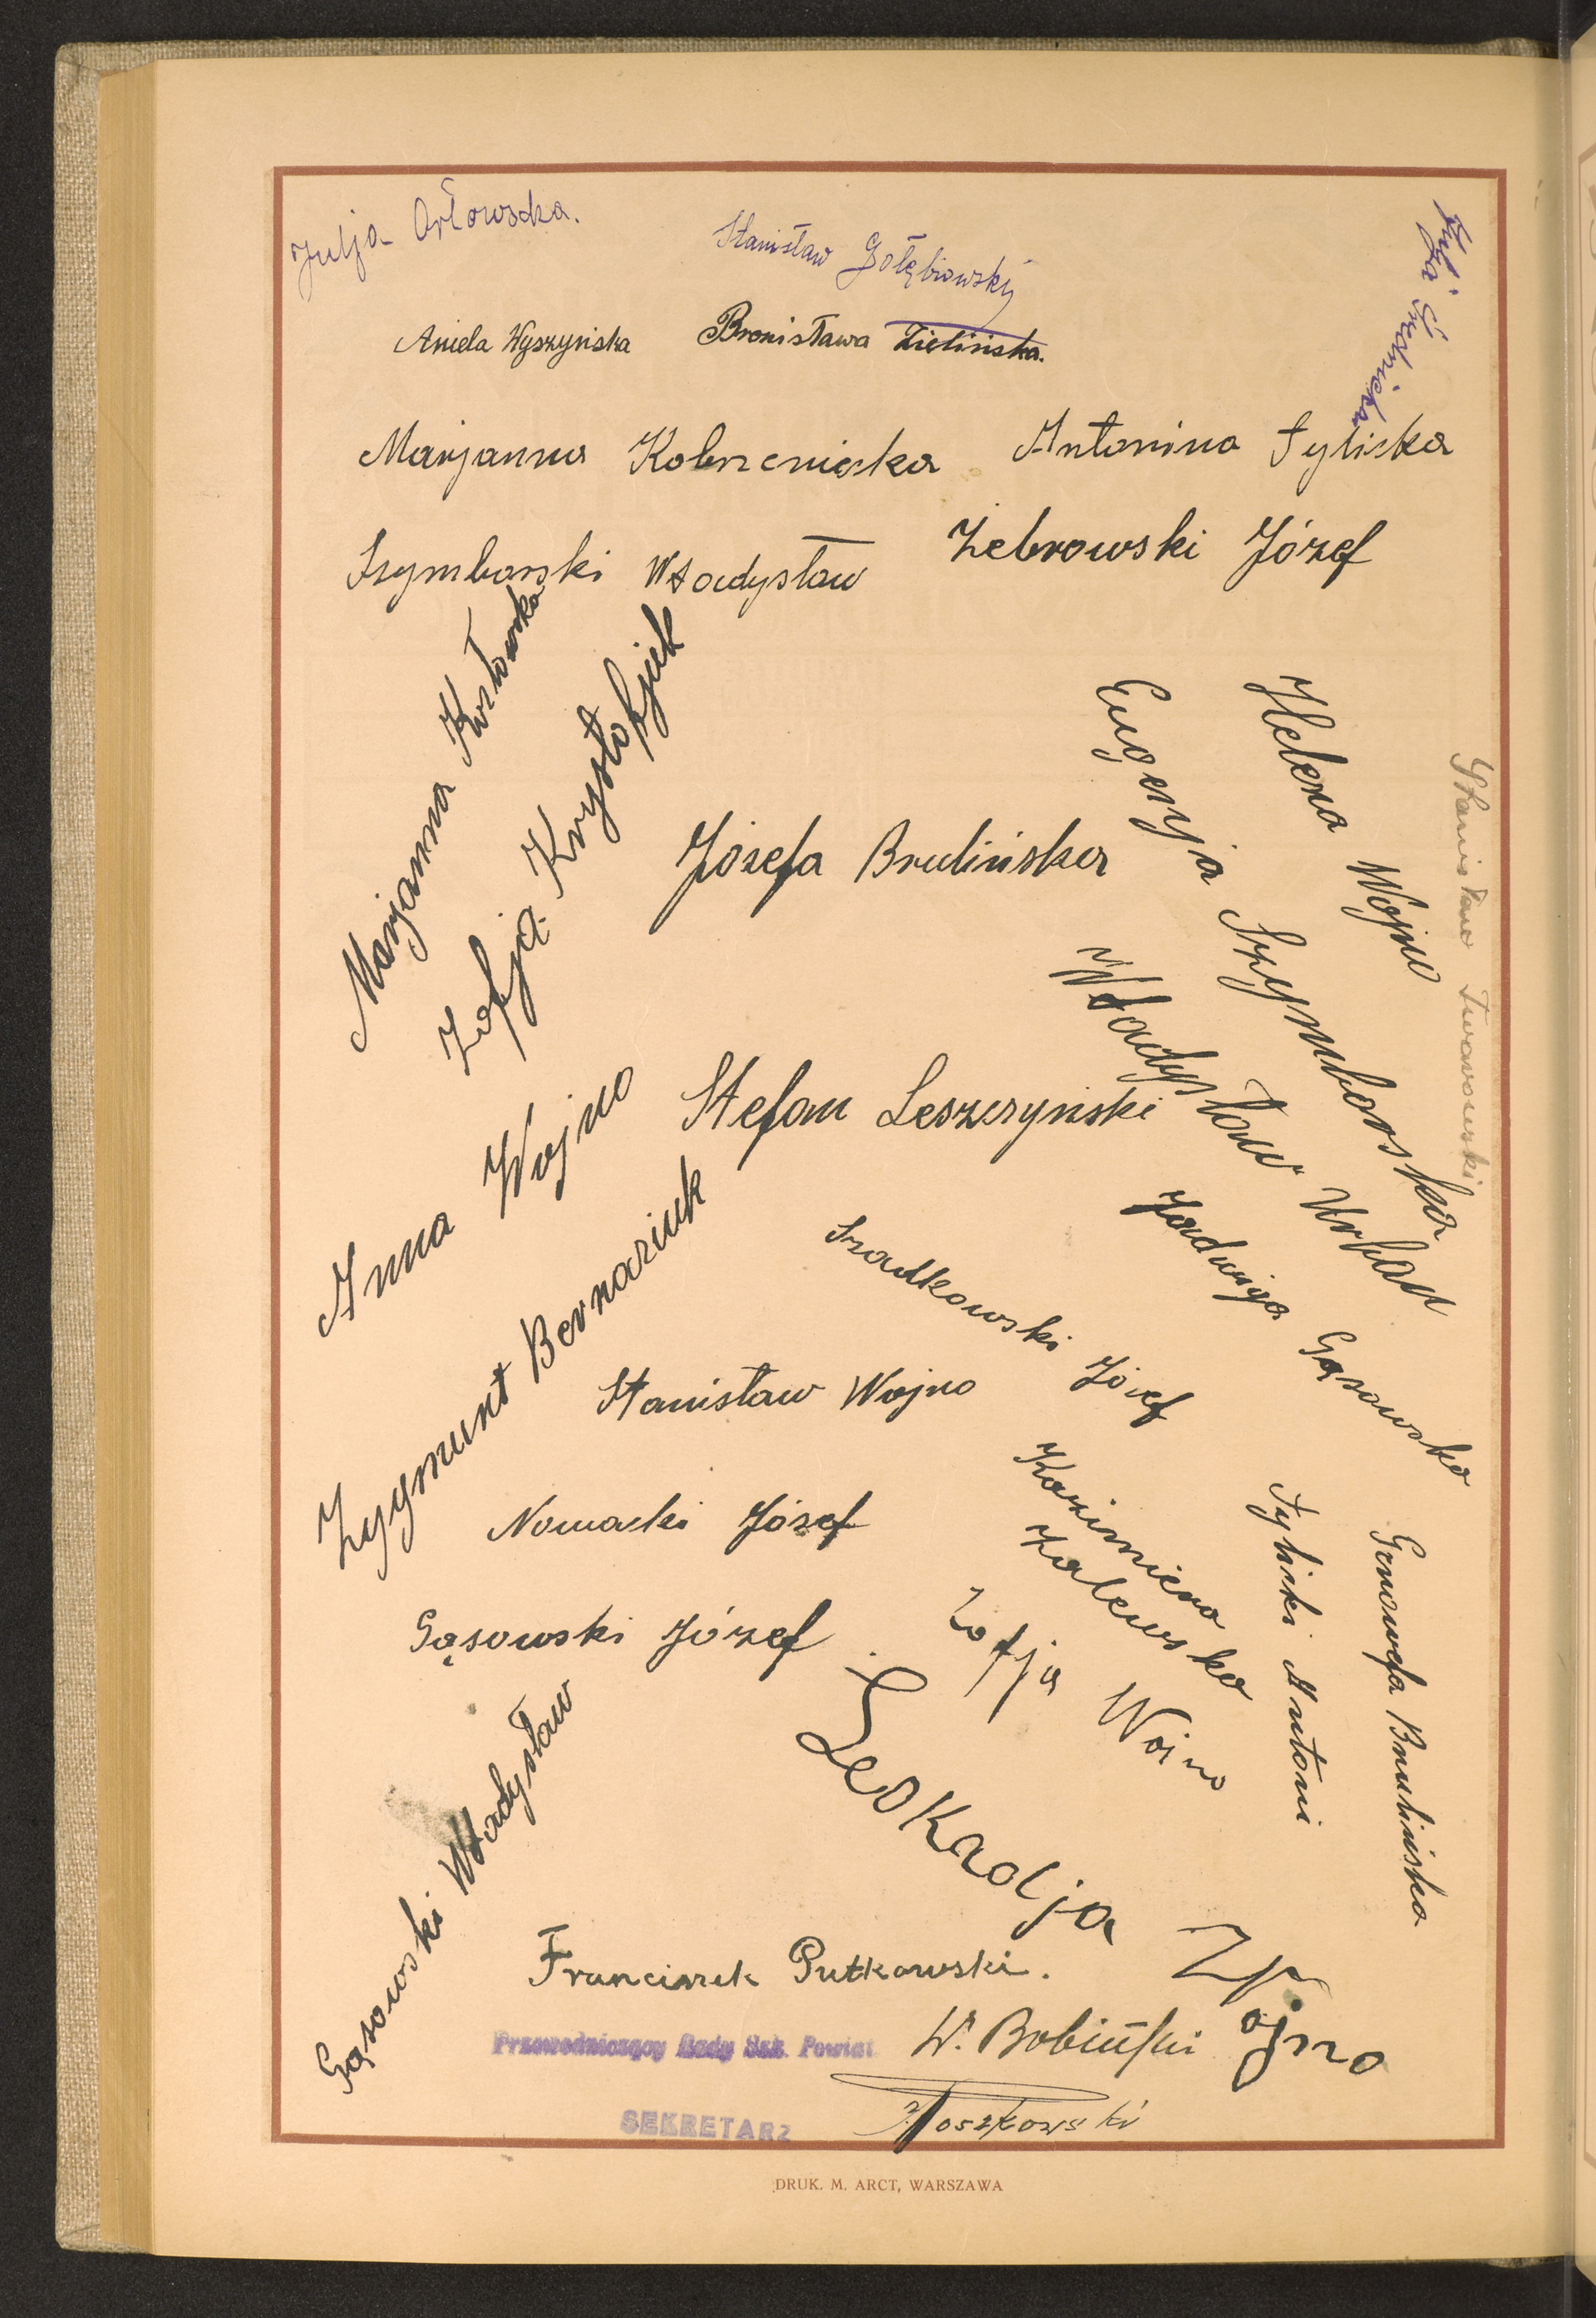 Julja Orłowska.
Stanisław Gołębiowski
Aniela Wyszyńska
Bronisława Zielińska.
Marjanna
Antonina Tyliska
Szymborski Władysław
Żebrowski Józef
Marjanna Kozłowska
Zofja Krystofjuk
Eugenja Szymborska
Helena Wojno
Stanisław Twarowski
Józefa Brulińska
Władysław Urban
Anna Wojno
Stefan Leszczyński
Zygmunt Bernaziuk
Szadkowski Józef
Jadwiga Gąsowska
Stanisław Wojno
Nowacki Józef
Kazimiera
Zalewska
Tyliski Antoni
Genowefa Brulińska
Gąsowski Józef
Zofja Wojno
Leokadja Wojno
Gąsowski Władysław
Franciszek Putkowski.
Przewodniczący Rady Szk. Powiat
W. Bobiński
SEKRETARZ
DRUK. M. ARCT, WARSZAWA